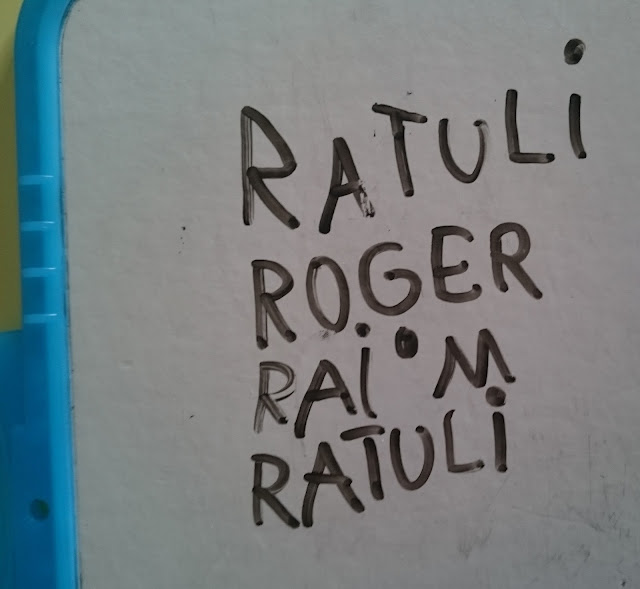 RATULi
ROGER
RAi•M
RATULi